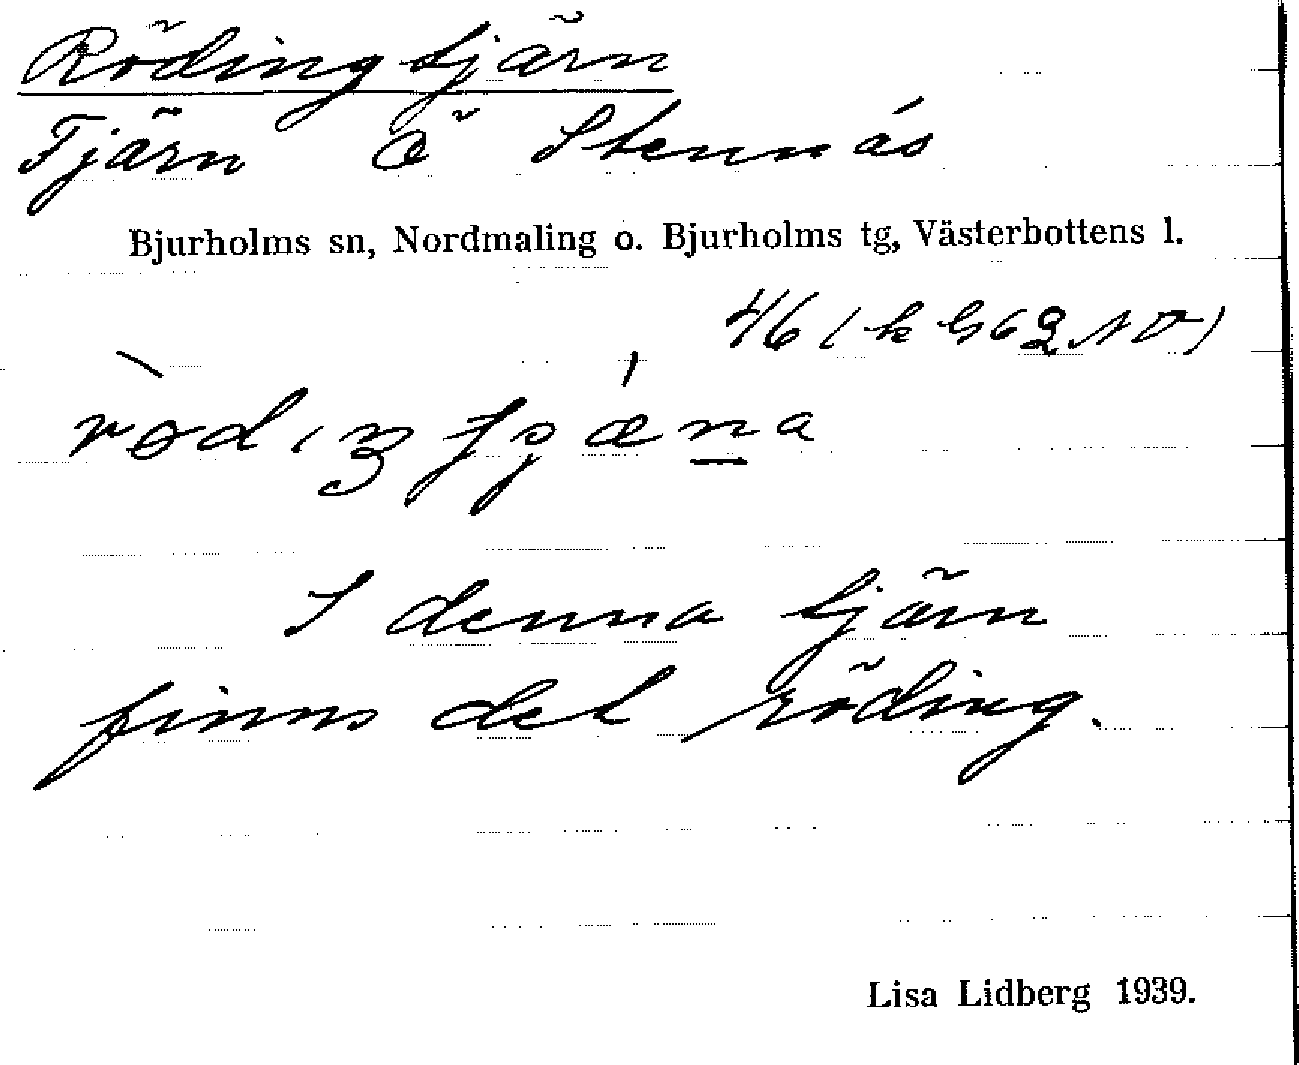 Rödingtjärn
Tjärn Ö Stennäs
Bjurholms sn, Nordmaling o. Bjurholms tg, Västerbottens l.
46 (k G62 NO)
I denna tjärn
finns det röding.
Lisa Lidberg 1939.